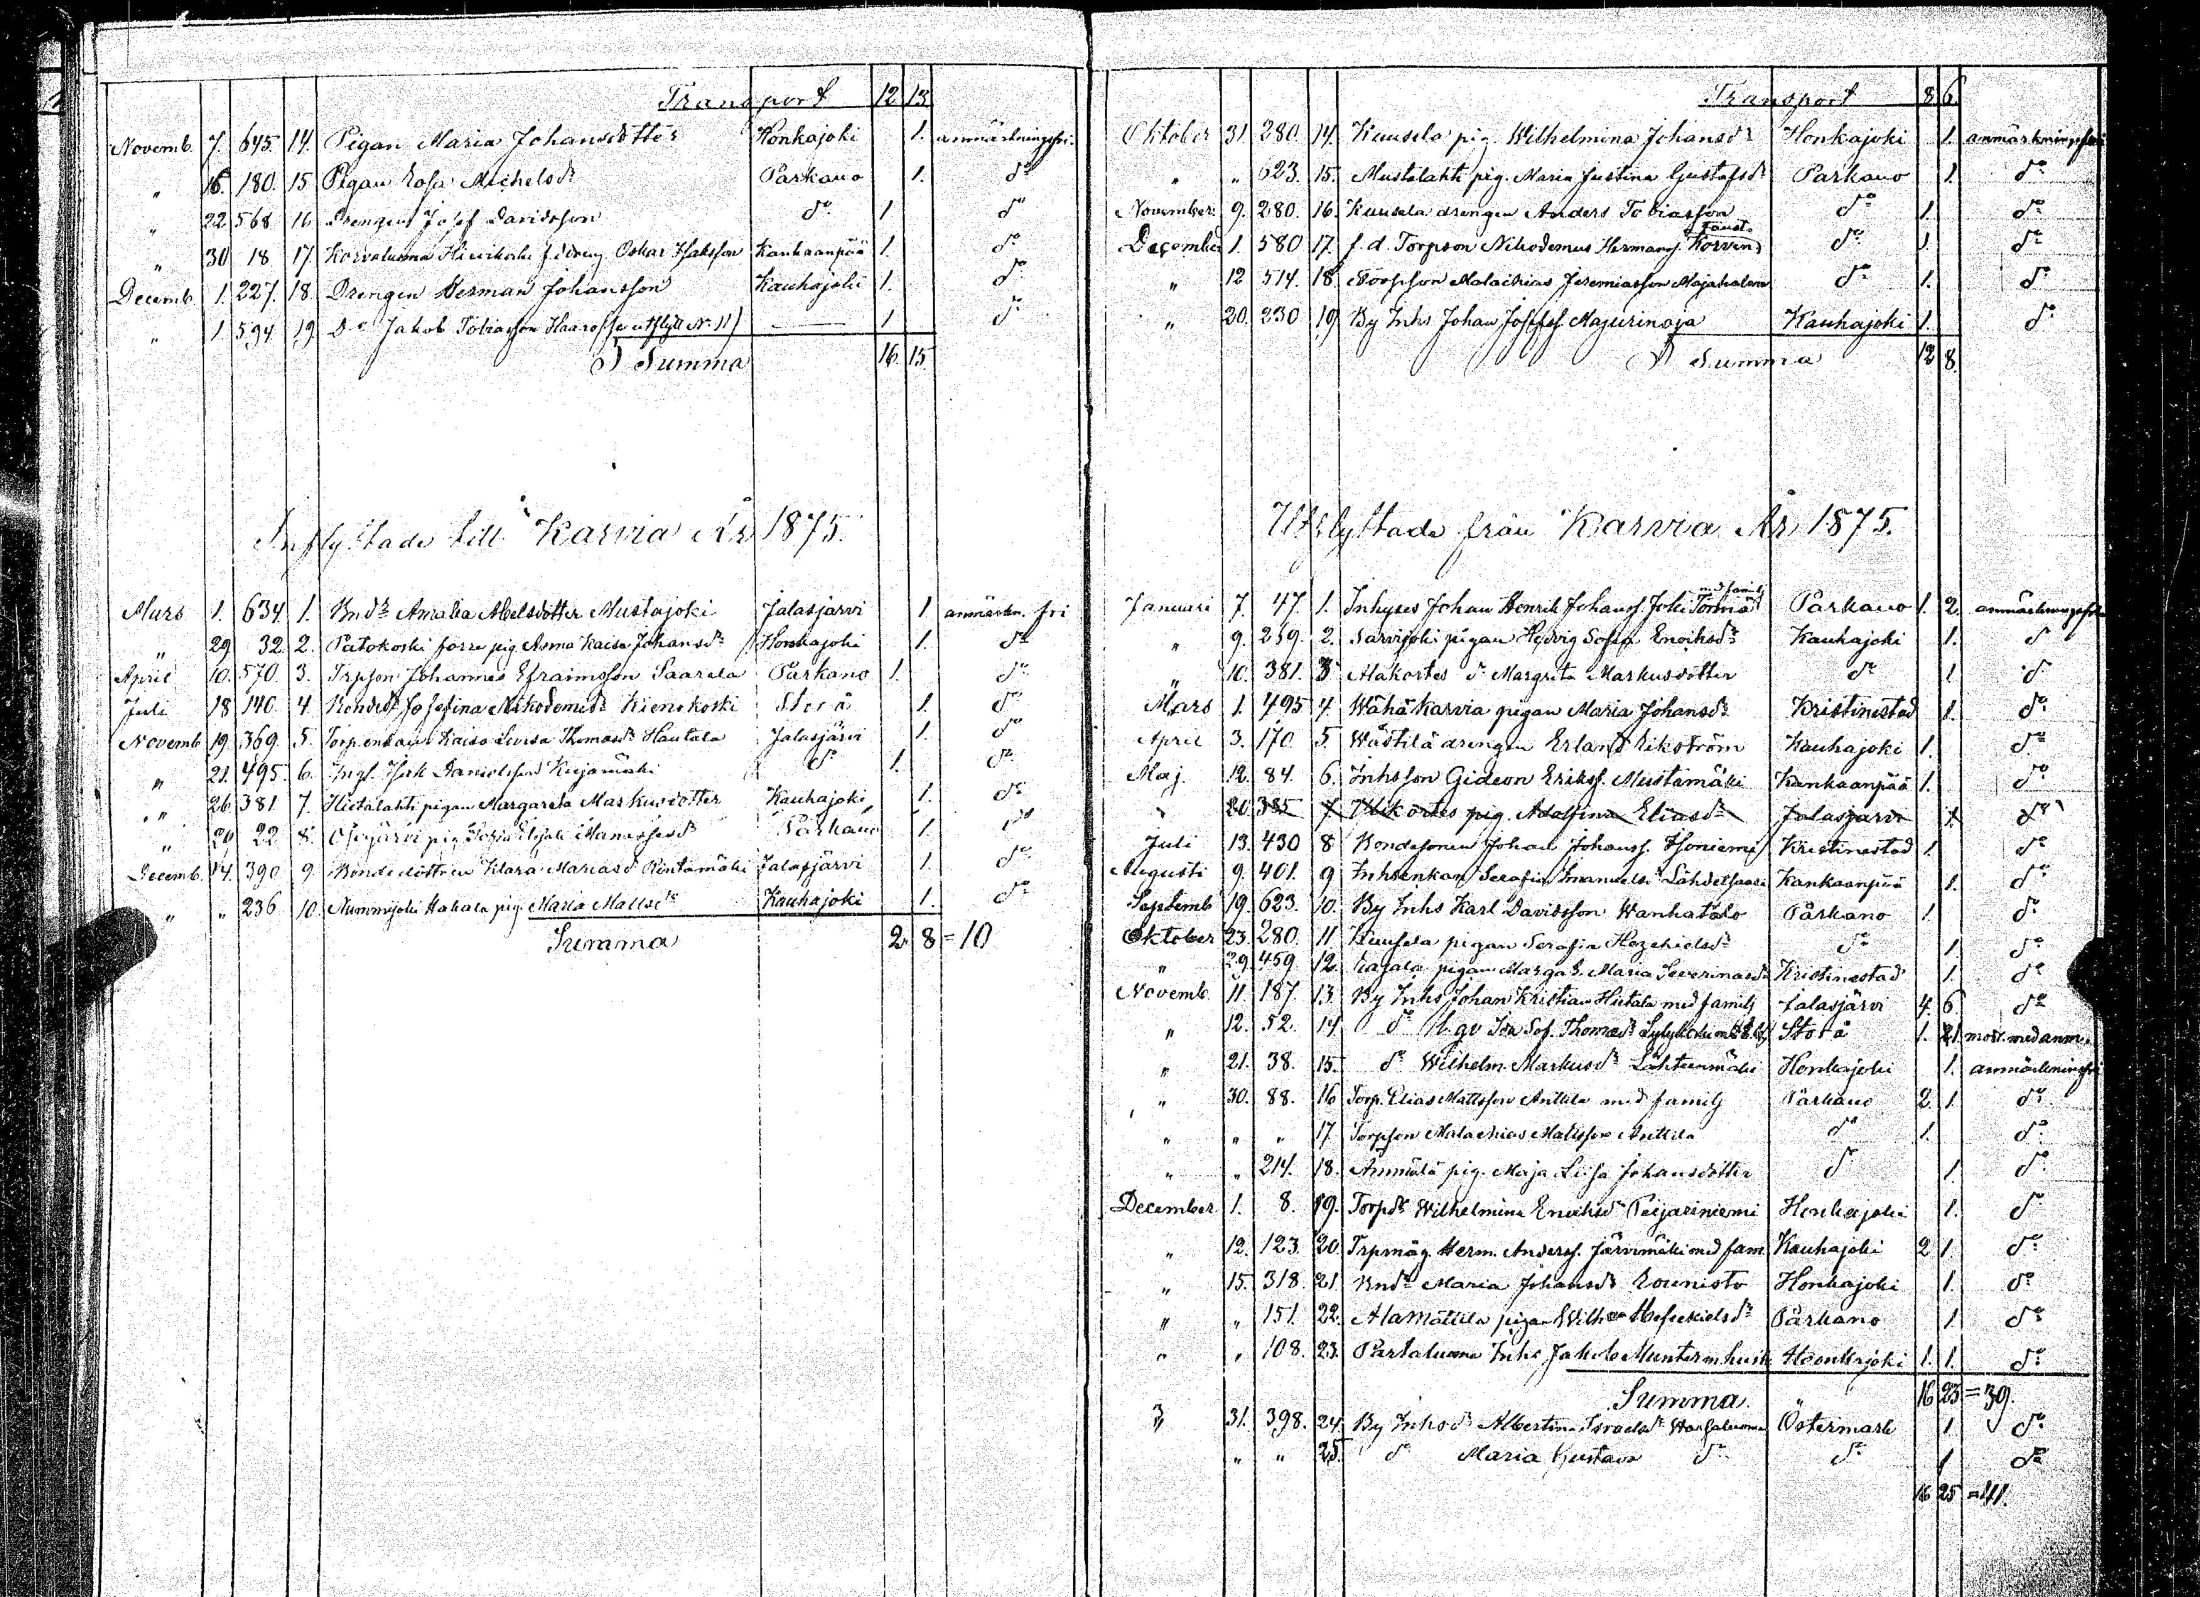 Transport 12 13
Novemb. 7. 645. 14. Pigan Maria Johansdotter Honkajoki 1. anmärkningsfri.
" 16. 180. 15 Pigan Rosa Michelsdr Parkano 1. do
" 22 568 16 Drengen Josef Davidsson do 1 do
" 30 18 17. Korvaluoma Oskar Isaksson Kankaanpää 1. do
Decemb. 1. 227. 18. Drengen Herman Johansson Kauhajoki 1. do
" 1 594 19. Do Jakob Tobiasson 1 do
Summa 16. 15.
Inflyttade till Karvia År 1875.
Mars 1. 634. 1. Bnddr Amalia Abelsdotter Mustajoki Jalasjärvi 1 anmärkn. fri
" 29 32. 2. Patokoski förre pig Anna Kaisa Johansdr Honkajoki 1. do
April 10. 570. 3. Trpson Johannes Efraimsson Saarela Parkano 1. do
Juli 18 140. 4 Bondedr Josefina Nikodemidr Kienokoski Storå 1. do
Novemb 19. 369. 5. Torpenkan Kaisa Lovisa Thomasdr Hautala Jalasjärvi 1. do
" 21. 495. 6. Isak Danielsson do 1. do
" 26 381. 7. Hietalahti pigan Margareta Markusdotter Kauhajoki 1. do
" 20 22 8. pig Parkano 1. do
Decemb. 14. 390 9. Bonde dottren Klara Mariasdr Röntamäki Jalasjärvi 1. do
" " 236 10. Nummijoki Hakala pig Maria Mattsdr Kauhajoki 1. do
Summa 2. 8 = 10
Transport 8 6.
Oktober 31. 280. 14. Kuusela pig. Wilhelmina Johansdr Honkajoki 1. anmärkningsfri
" " 623. 15. Mustalahti pig. Maria Justina Gustafsdr Parkano 1. do
November 9. 280. 16. Kuusela drengen Anders Tobiasson do 1. do
December 1. 580 17. f.d. Torpson Nikodemus Hermans. Korven do 1. do
" 12 514. 18. Torpson Malachias Jeremiasson do 1. do
" 20. 230 19. By Inhs Johan Josefss. Majurinoja Kauhajoki 1. do
Summa 12 8.
Utflyttade från Karvia År 1875.
med familj
Januari 7. 47. 1. Inhyses Johan Henrik Johanss. Joki Törmä Parkano 1. 2. anmärkningsfri
" 9. 259. 2. Sarvijoki pigan Hedvig Sofia Enoiksdr Kauhajoki 1. do
" 10. 381. 3 Alakortes do Margreta Markusdotter do 1 do
Mars 1. 495 4. Wähäkarvia pigan Maria Johansdr Kristinestad 1. do
April 3. 170. 5. Wästilä drengen Erland Eikström Kauhajoki 1. do
Maj. 12. 84. 6. Inhsson Gideon Erikss. Mustamäki Kankaanpää 1. do
" 20. 385 7. pig. Adolfina Eliasdr Jalasjarvi 1. do
Juli 13. 430 8 Bondesonen Johan Johanss. Isoniemi Kristinestad 1. do
Augusti 9. 401. 9 Inhsenkan Serafia Imanuelsdr Lähdetsaari Kankaanpää 1. do
Septemb. 19. 623. 10. By Inhs Karl Davidsson Wanhatalo Parkano 1. do
Oktober 23. 280. 11. Kuusela pigan Serafia Hezekielsdr do 1. do
" 29. 459. 12. Rajala pigan Margar. Maria Severinasdr Kristinestad 1. do
Novemb. 11. 187. 13. By Inhs Johan Kristian Hietala med familj Jalasjärvi 4. 6 do
" 12. 52. 14 do Sof. Thomasdr Storå 1. 1. med anm.
" 21. 38. 15. do Wilhelm. Markusdr Lähteenmäki Honkajoki 1. anmärkningsfri
" 30. 88. 16 Torp. Elias Mattsson Anttila med familj Parkano 2. 1. do
" " " 17. Torpson Malachias Mattsson Anttila do 1. do
" " 214. 18. Ammälä pig. Maja Lisa Johansdotter do 1. do
December. 1. 8. 19. Torpdr Wilhelmina Enoiksdr Peijariniemi Honkajoki 1. do
" 12. 123. 20. Trpmåg. Herm. Anderss. Järvimäki med fam. Kauhajoki 2 1. do
" 15. 318. 21. Bnddr Maria Johansdr Rounisto Honkajoki 1. do
" " 151. 22. Alamattila pigan Wilh. Hesekielsdr Parkano 1. do
" " 108. 23. Partaluoma Inhs Jakob Munter m. hustr. Honkajoki 1. 1. do
Summa 16 23 = 39.
" 31. 398. 24. By Inhsdr Albertina Israelsdr Östermark 1 do
" " 25. do Maria Gustava do do 1 do
16 25 = 41.